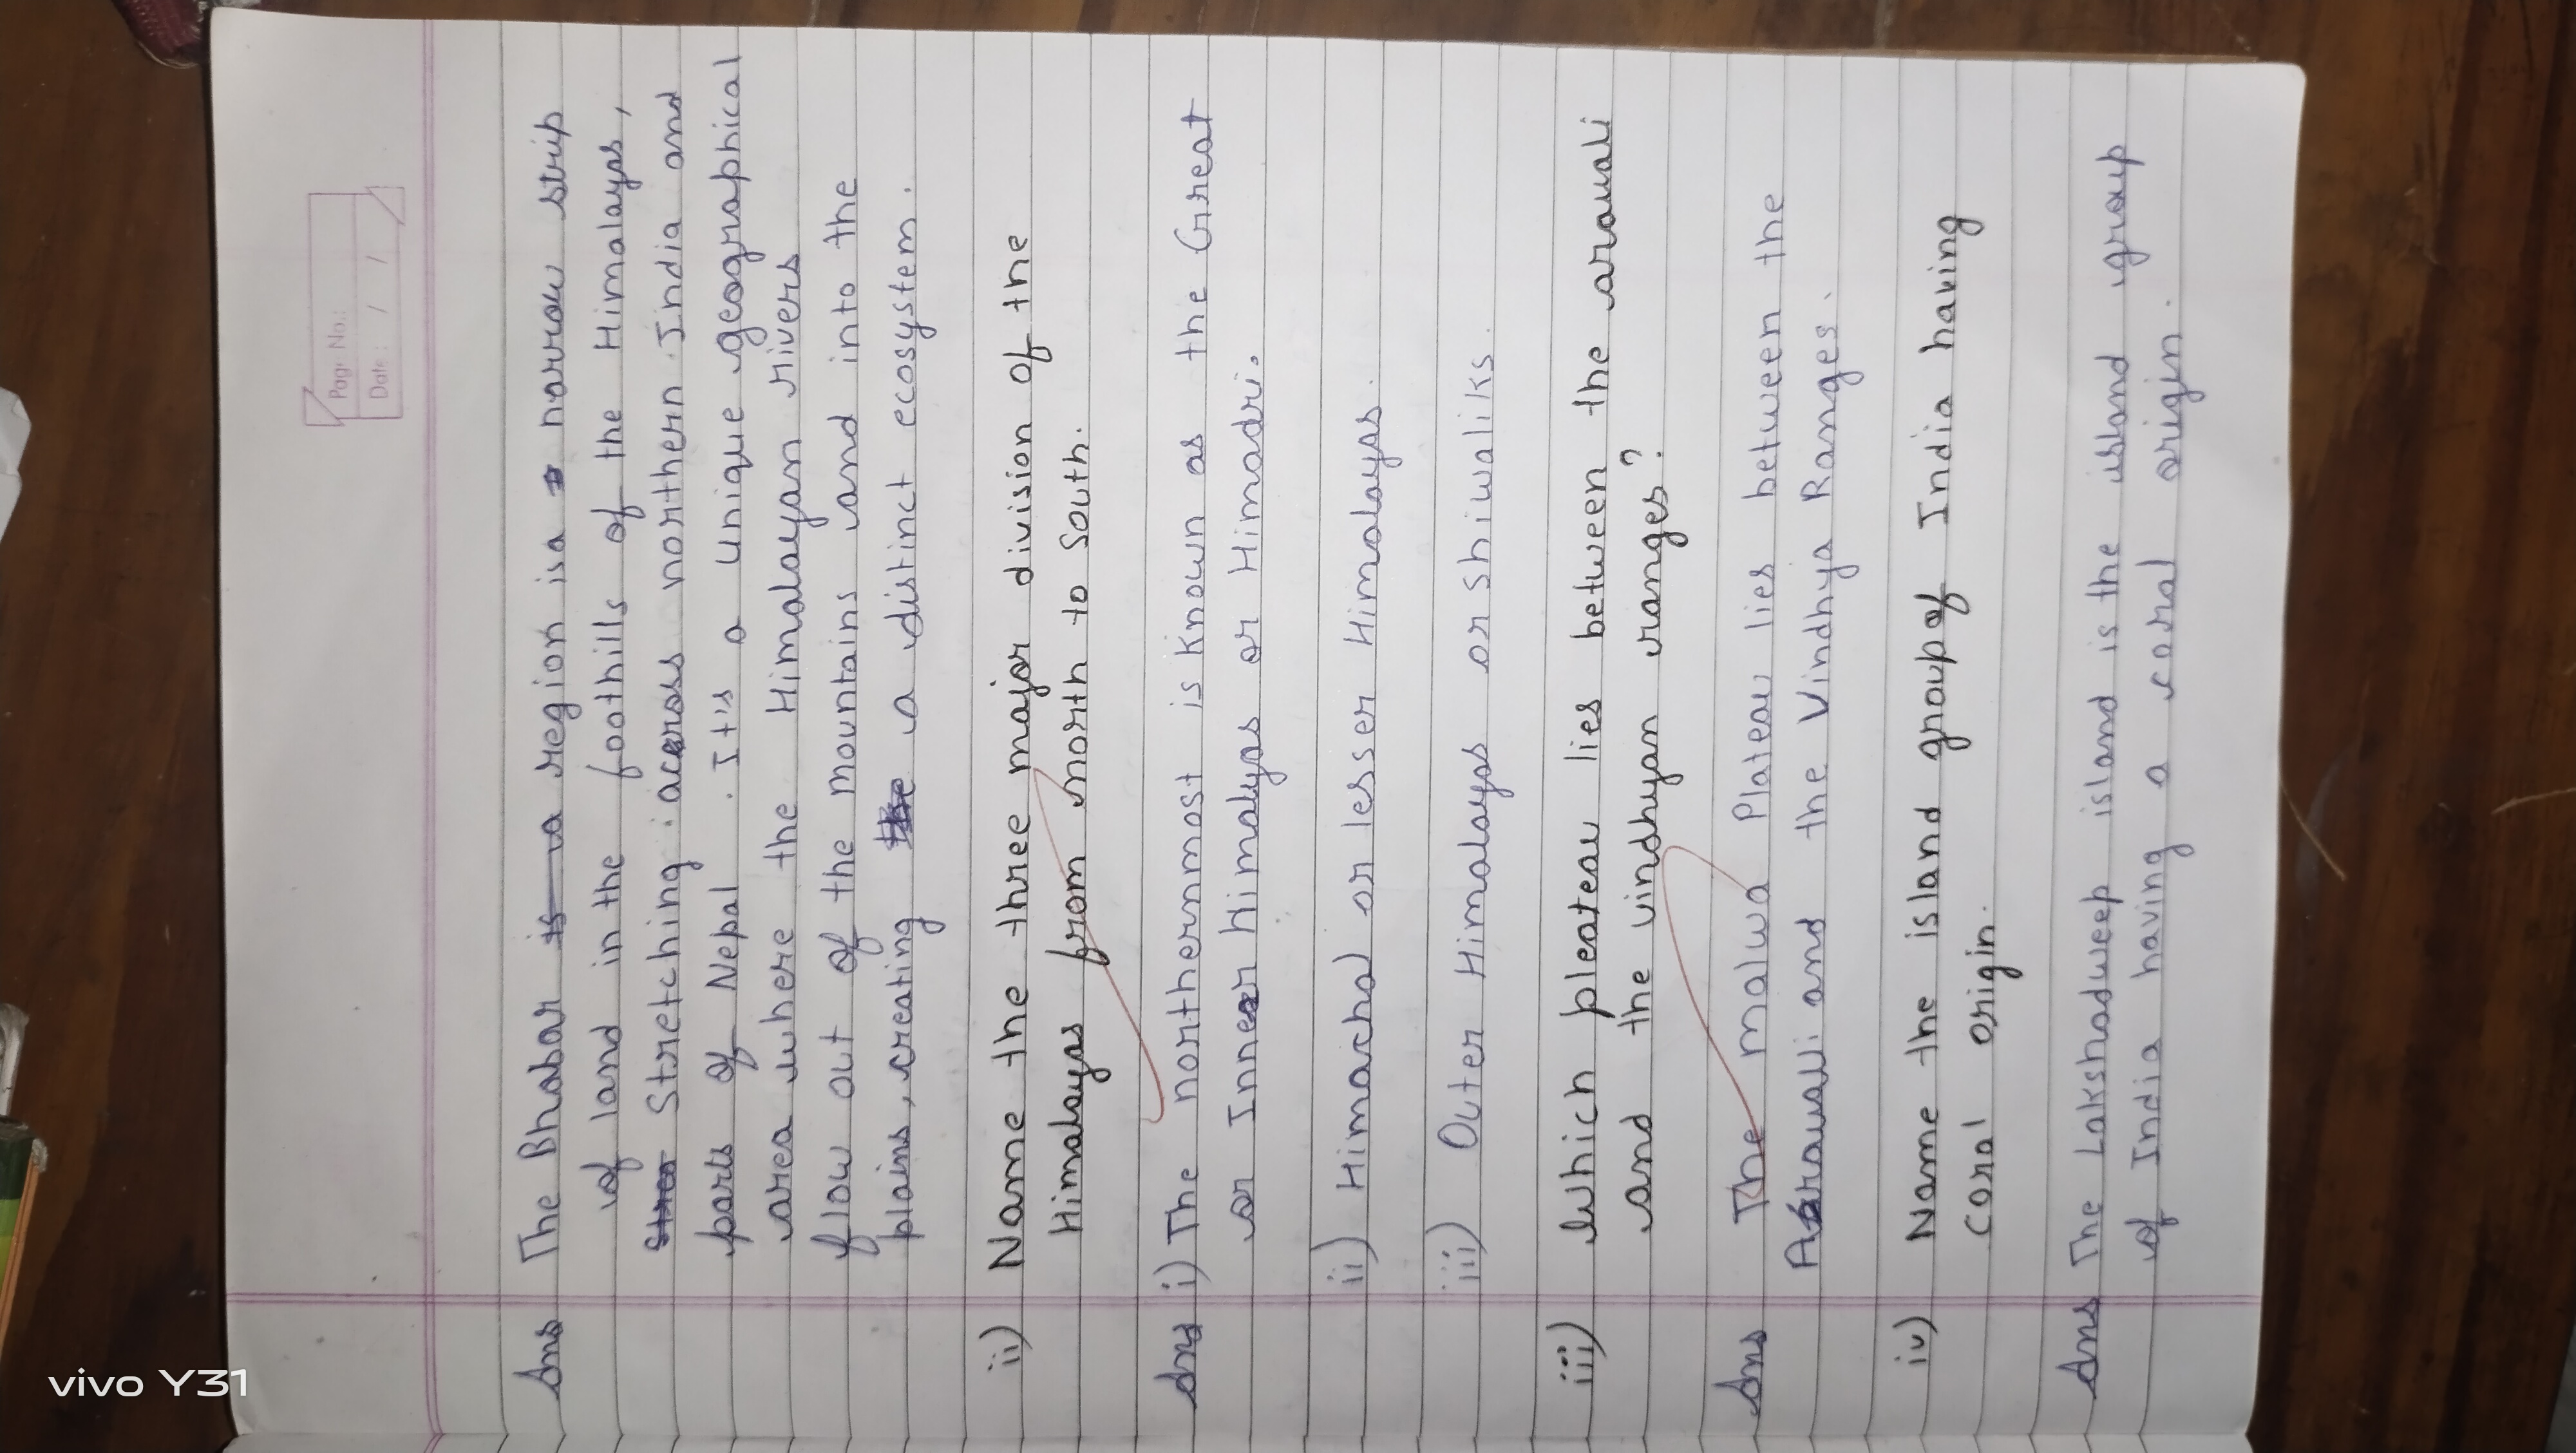 Page No.:
Date: / /
Ans The Bhabar is a region is a narrow strip
of land in the foothills of the Himalayas,
Stretching across northern India and
parts of Nepal. It's a unique geographical
area where the Himalayan rivers
flow out of the mountains and into the
plains, creating the a distinct ecosystem.
ii) Name the three major division of the
Himalayas from north to South.
Ans i) The northernmost is known as the Great
or Inner Himalyas or Himadri.
ii) Himachal or lesser Himalayas.
iii) Outer Himalayas or shiwaliks.
iii) Which pleateau lies between the arauali
and the vindhyan ranges?
Ans The malwa Plateau lies between the
Arauali and the Vindhya Ranges.
iv) Name the island group of India having
coral origin.
Ans The Lakshadweep island is the island group
of India having a coral origin.
vivo Y31